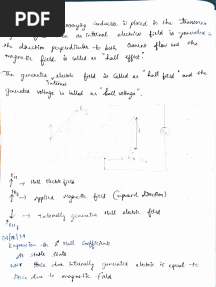 PDF
carrying conductor is placed in the transverse
an internal electrical field is generated in
the direction perpendicular to both current flow and the
magnetic field is called as "hall effect".
The generated electric field is called as "hall field" and the
internal
generated voltage is called as "hall voltage".
EH → Hall electric field
→ Applied magnetic field (upward direction)
→ Internally generated Hall electric field
Expression for Hall Coefficient
At stable state
force due internally generated electric is equal to
force due to magnetic field